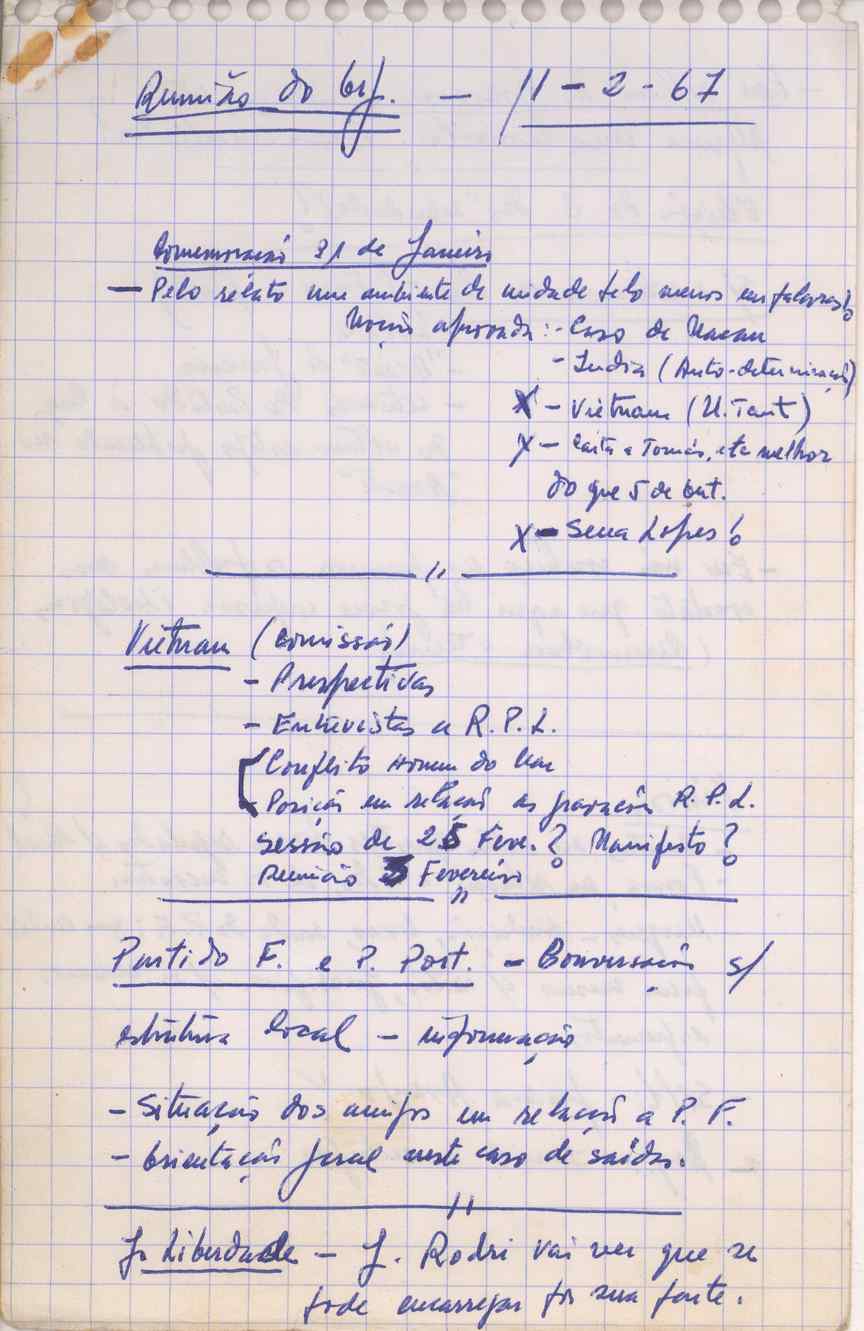 Reunião do Org. — 11-2-67
Comemoração 31 de Janeiro
— Pelo relato um ambiente de unidade pelo menos em palavras!
Moção aprovada: - Caso de Macau
- India (Auto-determinação)
X - Vietnam (U. Tant)
X - Carta a Tomás, etc melhor
do que 5 de Out.
X - Sena Lopes!
Vietnam (Comissão)
- Prespectivas
- Entrevistas a R.P.L.
Conflito Homem do
- Posição em relação às R.P.L.
Sessão de 25 Feve.? Manifesto?
Reunião 3 Fevereiro
Partido F. e P. Port. - Conversações s/
estrutura local - informação
- Situação dos amigos em relação a P. F.
- Orientação geral neste caso de saídas.
J. Liberdade - J. Rodri vai ver que se
pode encarregar por sua parte.